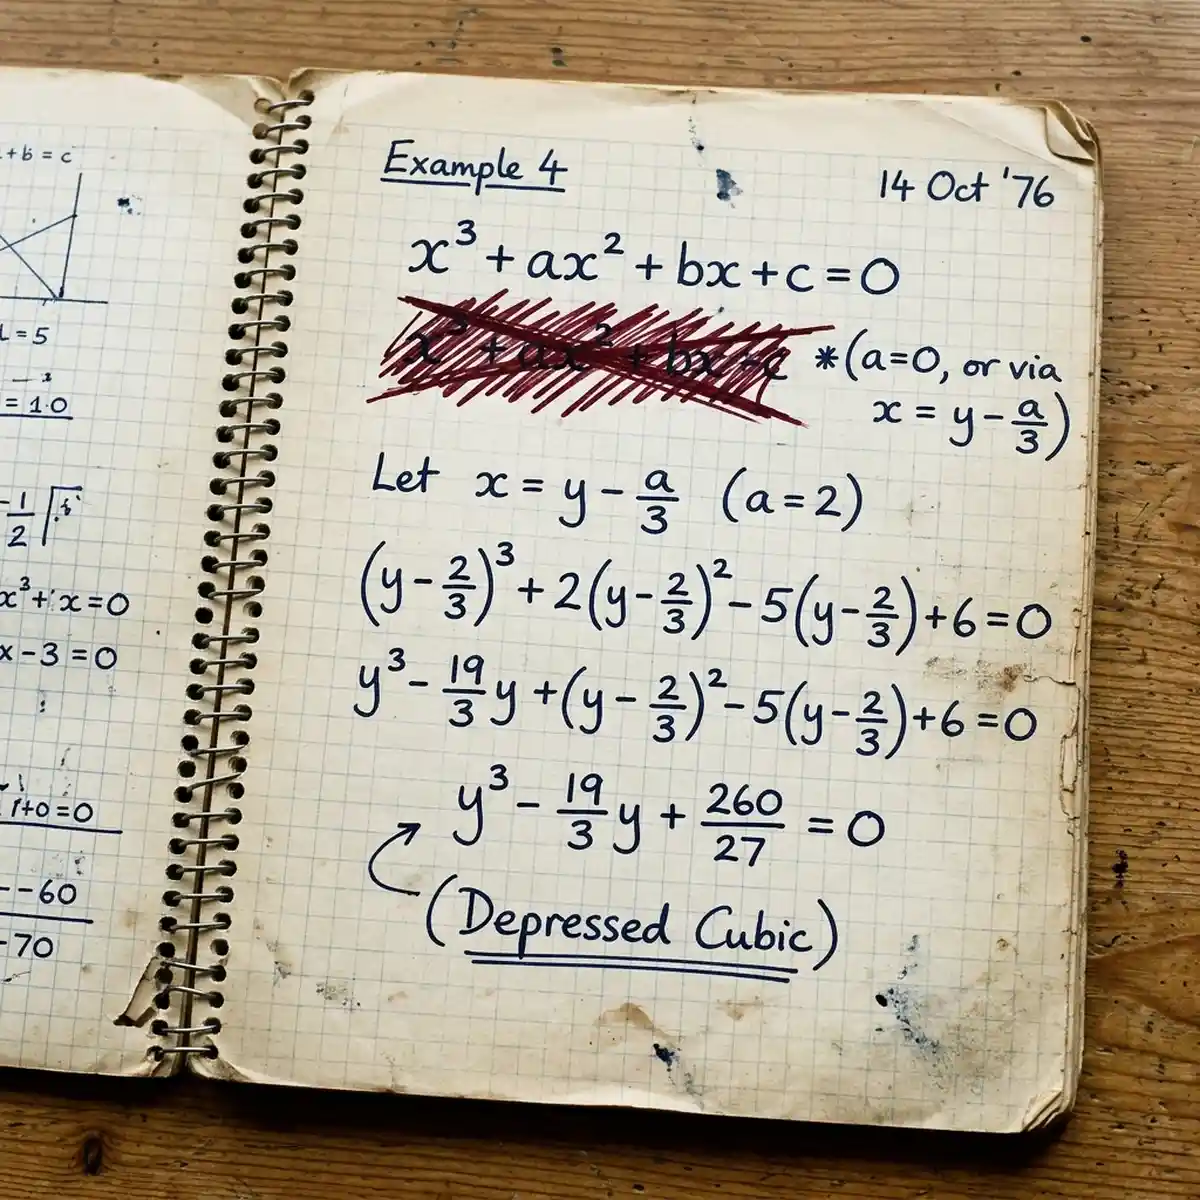 +b = c
= 5
= 1.0
x³+x=0
x-3=0
1+0=0
--60
-70
Example 4
14 Oct '76
x³ + ax² + bx + c = 0
x³ + ax² + bx = c
*(a=0, or via
x = y - a/3)
Let x = y - a/3 (a=2)
(y - 2/3)³ + 2(y - 2/3)² - 5(y - 2/3) + 6 = 0
y³ - 19/3 y + (y - 2/3)² - 5(y - 2/3) + 6 = 0
y³ - 19/3 y + 260/27 = 0
(Depressed Cubic)